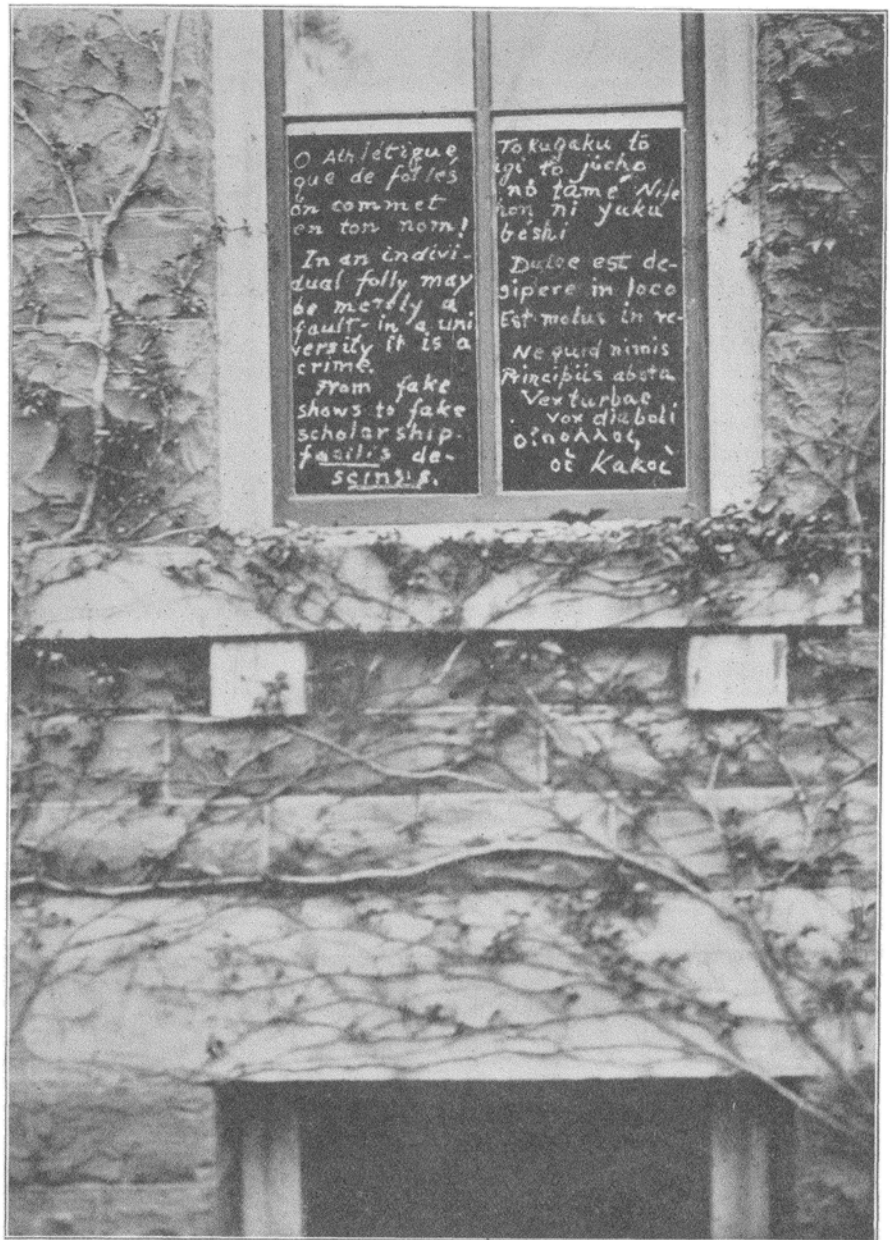 O Athlétique
que de folles
on commet
en ton nom!
In an indivi-
dual folly may
be merely a
fault-in a uni
versity it is a
crime.
From fake
shows to fake
scholarship-
facilis de-
scinsis.
Tokugaku tō
igi tō jūcho
nō tāmé
hon ni yuku
béshi
Dulce est de-
sipere in loco
Est modus in re-
Ne quid nimis
Principiis absta
Vexturbae
vox diaboli
οἱ πολλοί,
οἱ Κακοί